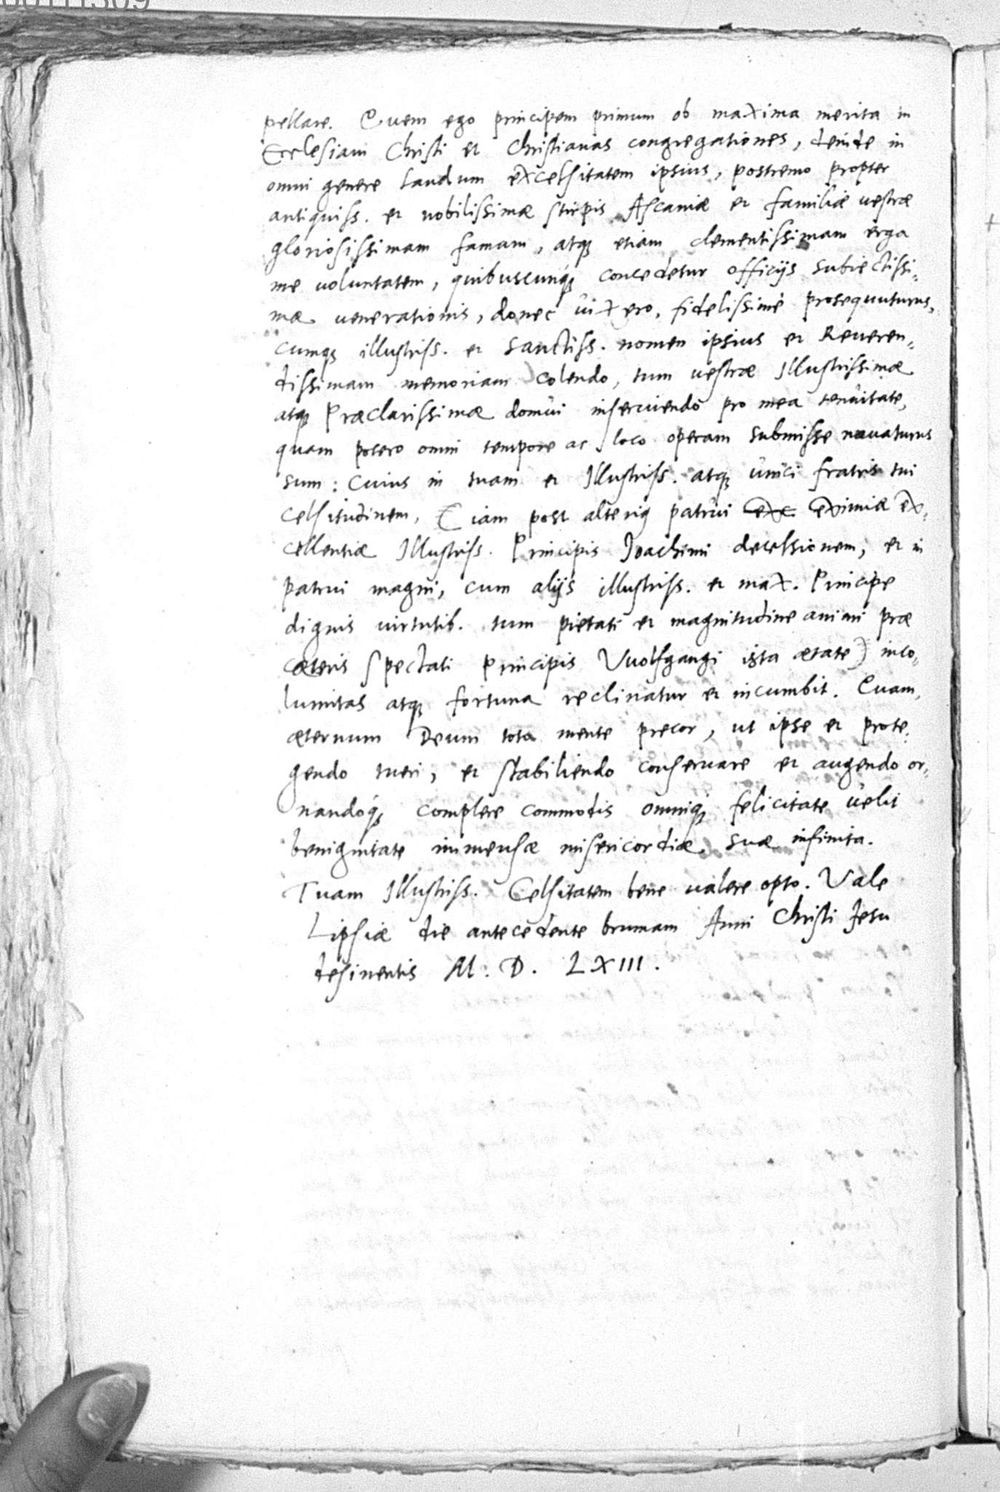 pellare. Quem ego principem primum ob maxima merita in
Ecclesiam Christi et Christianas congregationes, deinde in
omni genere laudum excelsitatem ipsius, postremo propter
antiquiss. et nobilissimæ stirpis Ascaniæ et familiæ vestræ
gloriosissimam famam, atque etiam clementissimam erga
me voluntatem, quibuscunque concedetur officijs subiectissi-
mæ venerationis, donec vixero, fidelissime prosequuturus,
cumque illustriss. et sanctiss. nomen ipsius et Reveren-
dissimam memoriam colendo, tum vestræ Illustrissimæ
atque Præclarissimæ domui inserviendo pro mea tenuitate,
quam potero omni tempore ac loco operam submisse navaturus
sum: Cuius in tuam et Illustriss. atque unici fratris tui
Celsitudinem, (iam post alterius patrui exc eximiæ ex-
cellentiæ Illustriss. Principis Joachimi decessionem, et in
patrui magni, cum alijs illustriss. et max. Principe
dignis virtutib. tum pietati et magnitudine animi præ
cæteris spectati Principis Vuolfgangi ista ætate) inco-
lumitas atque fortuna reclinatur et incumbit. Quam
æternum Deum tota mente precor, ut ipse et prote-
gendo tueri, et stabiliendo conservare et augendo or-
nandoque complere commodis omnique felicitate velit
benignitate immensæ misericordiæ suæ infinita.
Tuam Illustriss. Celsitatem bene valere opto. Vale
Lipsiæ die antecedente brumam Anni Christi Jesu
desinentis M. D. LXIII.